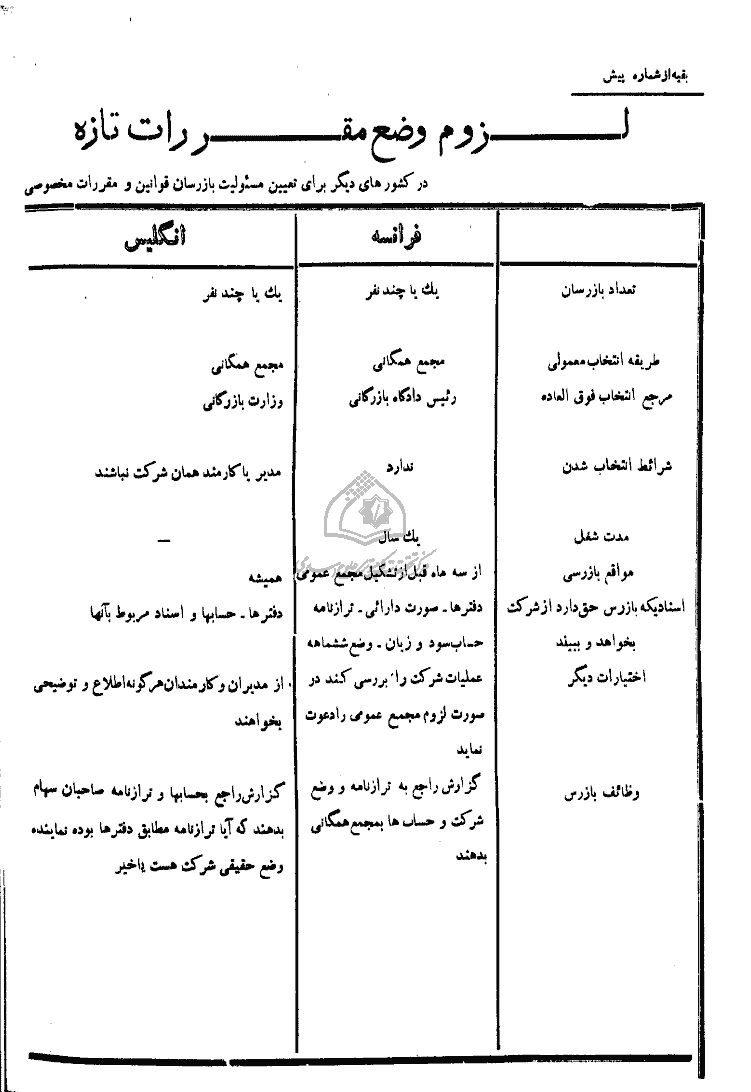 بقیه از شماره پیش
لزوم وضع مقررات تازه
در کشور های دیگر برای تعیین مسئولیت بازرسان قوانین و مقررات مخصوصی
فرانسه انگلیس
تعداد بازرسان یك یا چند نفر یك یا چند نفر
طریقه انتخاب معمولی مجمع همگانی مجمع همگانی
مرجع انتخاب فوق العاده رئیس دادگاه بازرگانی وزارت بازرگانی
شرائط انتخاب شدن ندارد مدیر یا کارمند همان شرکت نباشند
مدت شغل یك سال —
مواقع بازرسی از سه ماه قبل از تشکیل مجمع عمومی همیشه
اسنادیکه بازرس حق دارد از شرکت دفترها ـ صورت دارائی ـ ترازنامه دفترها ـ حسابها و اسناد مربوط بآنها
بخواهد و ببیند حساب سود و زیان ـ وضع ششماهه
اختیارات دیگر عملیات شرکت را بررسی کند در از مدیران و کارمندان هرگونه اطلاع و توضیحی
صورت لزوم مجمع عمومی را دعوت بخواهند
نماید
وظائف بازرس گزارش راجع به ترازنامه و وضع گزارش راجع بحسابها و ترازنامه صاحبان سهام
شرکت و حساب ها بمجمع همگانی بدهند که آیا ترازنامه مطابق دفترها بوده نماینده
بدهند وضع حقیقی شرکت هست یاخیر